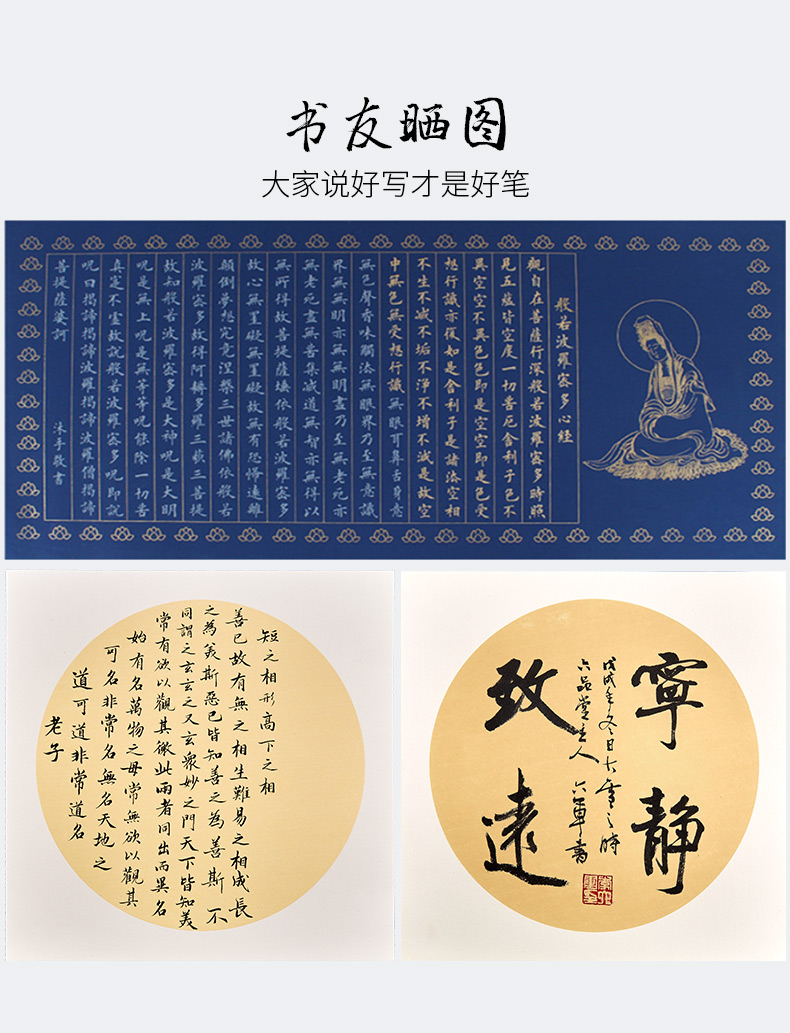 书友晒图
大家说好写才是好笔
般若波羅密多心經
觀自在菩薩行深般若波羅密多時照
見五蘊皆空度一切苦厄舍利子色不
異空空不異色色即是空空即是色受
想行識亦復如是舍利子是諸法空相
不生不滅不垢不淨不增不減是故空
中無色無受想行識無眼耳鼻舌身意
無色聲香味觸法無眼界乃至無意識
界無無明亦無無明盡乃至無老死亦
無老死盡無苦集滅道無智亦無得以
無所得故菩提薩埵依般若波羅密多
故心無罣礙無罣礙故無有恐怖遠離
顛倒夢想究竟涅槃三世諸佛依般若
波羅密多故得阿耨多羅三藐三菩提
故知般若波羅密多是大神呪是大明
呪是無上呪是無等等呪能除一切苦
真實不虛故說般若波羅密多呪即說
呪曰揭諦揭諦波羅揭諦波羅僧揭諦
菩提薩婆訶 沐手敬書
老子
道可道非常道名
可名非常名無名天地之
始有名萬物之母常無欲以觀其
常有欲以觀其徼此兩者同出而異名
同謂之玄玄之又玄衆妙之門天下皆知美
之為美斯惡已皆知善之為善斯不
善已故有無之相生難易之相成長
短之相形高下之相
寧靜
致遠
戊戌年冬日大雪之時
六品堂主人 六軍書